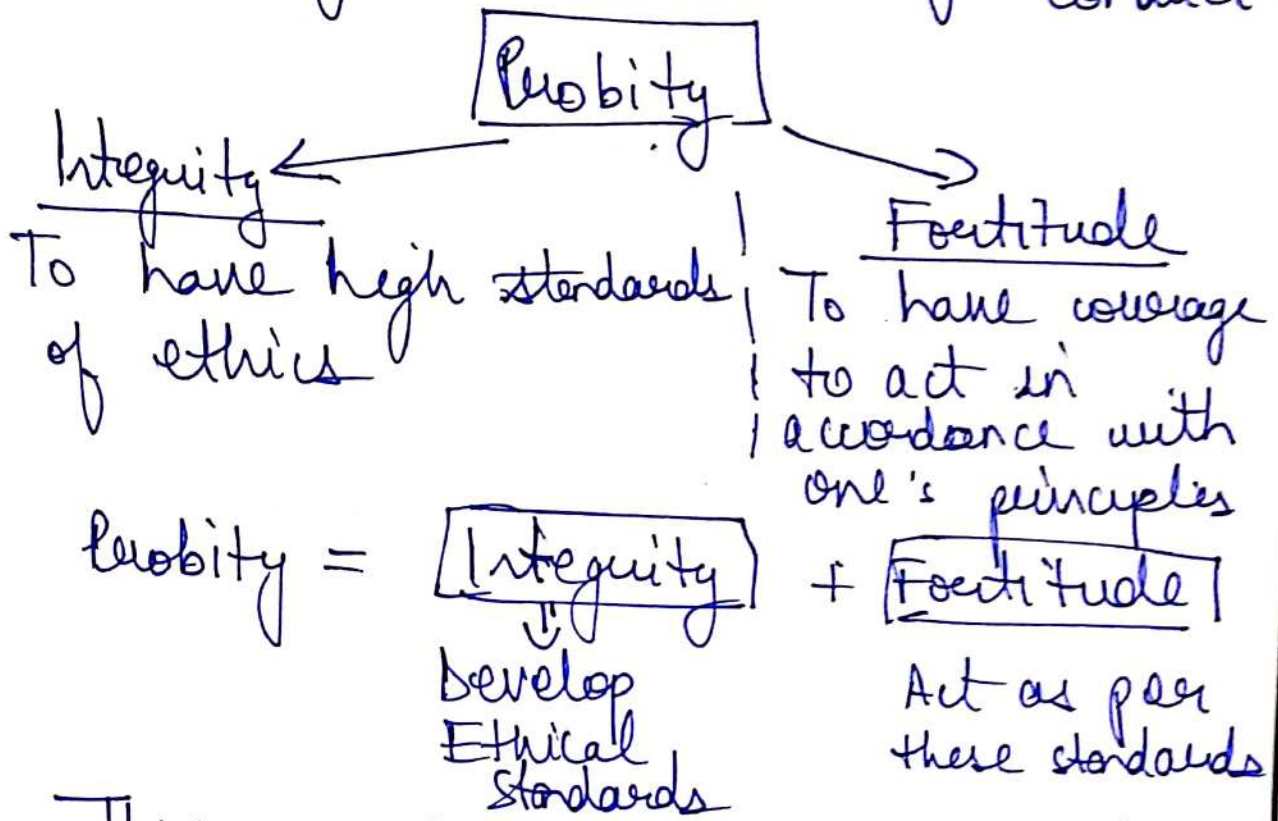 conduct
Probity
Integrity
To have high standards
of ethics
Fortitude
To have courage
to act in
accordance with
one's principles
Probity = Integrity + Fortitude
Develop
Ethical
Standards
Act as per
these standards